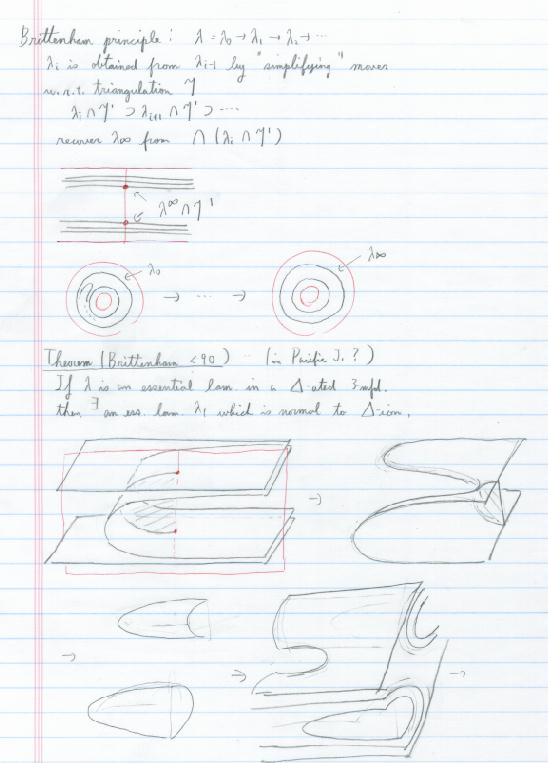 Brittenham principle : λ = λ0 → λ1 → λ2 → ⋯
λi is obtained from λi-1 by "simplifying" moves
w.r.t. triangulation τ
λi ∩ τ' ⊃ λi+1 ∩ τ' ⊃ ⋯
recover λ∞ from ∩ (λi ∩ τ')
λ∞ ∩ τ'
λ0
λ∞
→ ⋯ →
Theorem (Brittenham <90) ⋯ (in Pacific J. ?)
If λ is an essential lam. in a Δ-ated 3-mfd.
then ∃ an ess. lam. λ1 which is normal to Δ-ion.